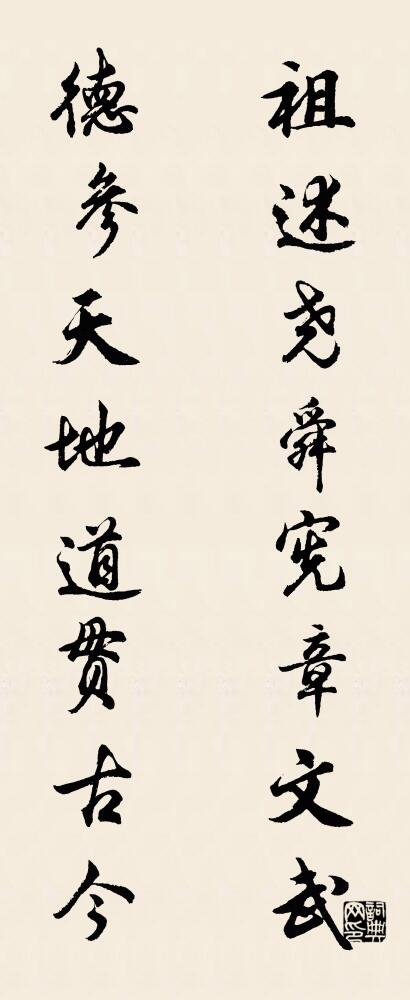 祖述尧舜宪章文武
德参天地道贯古今
詞典网印